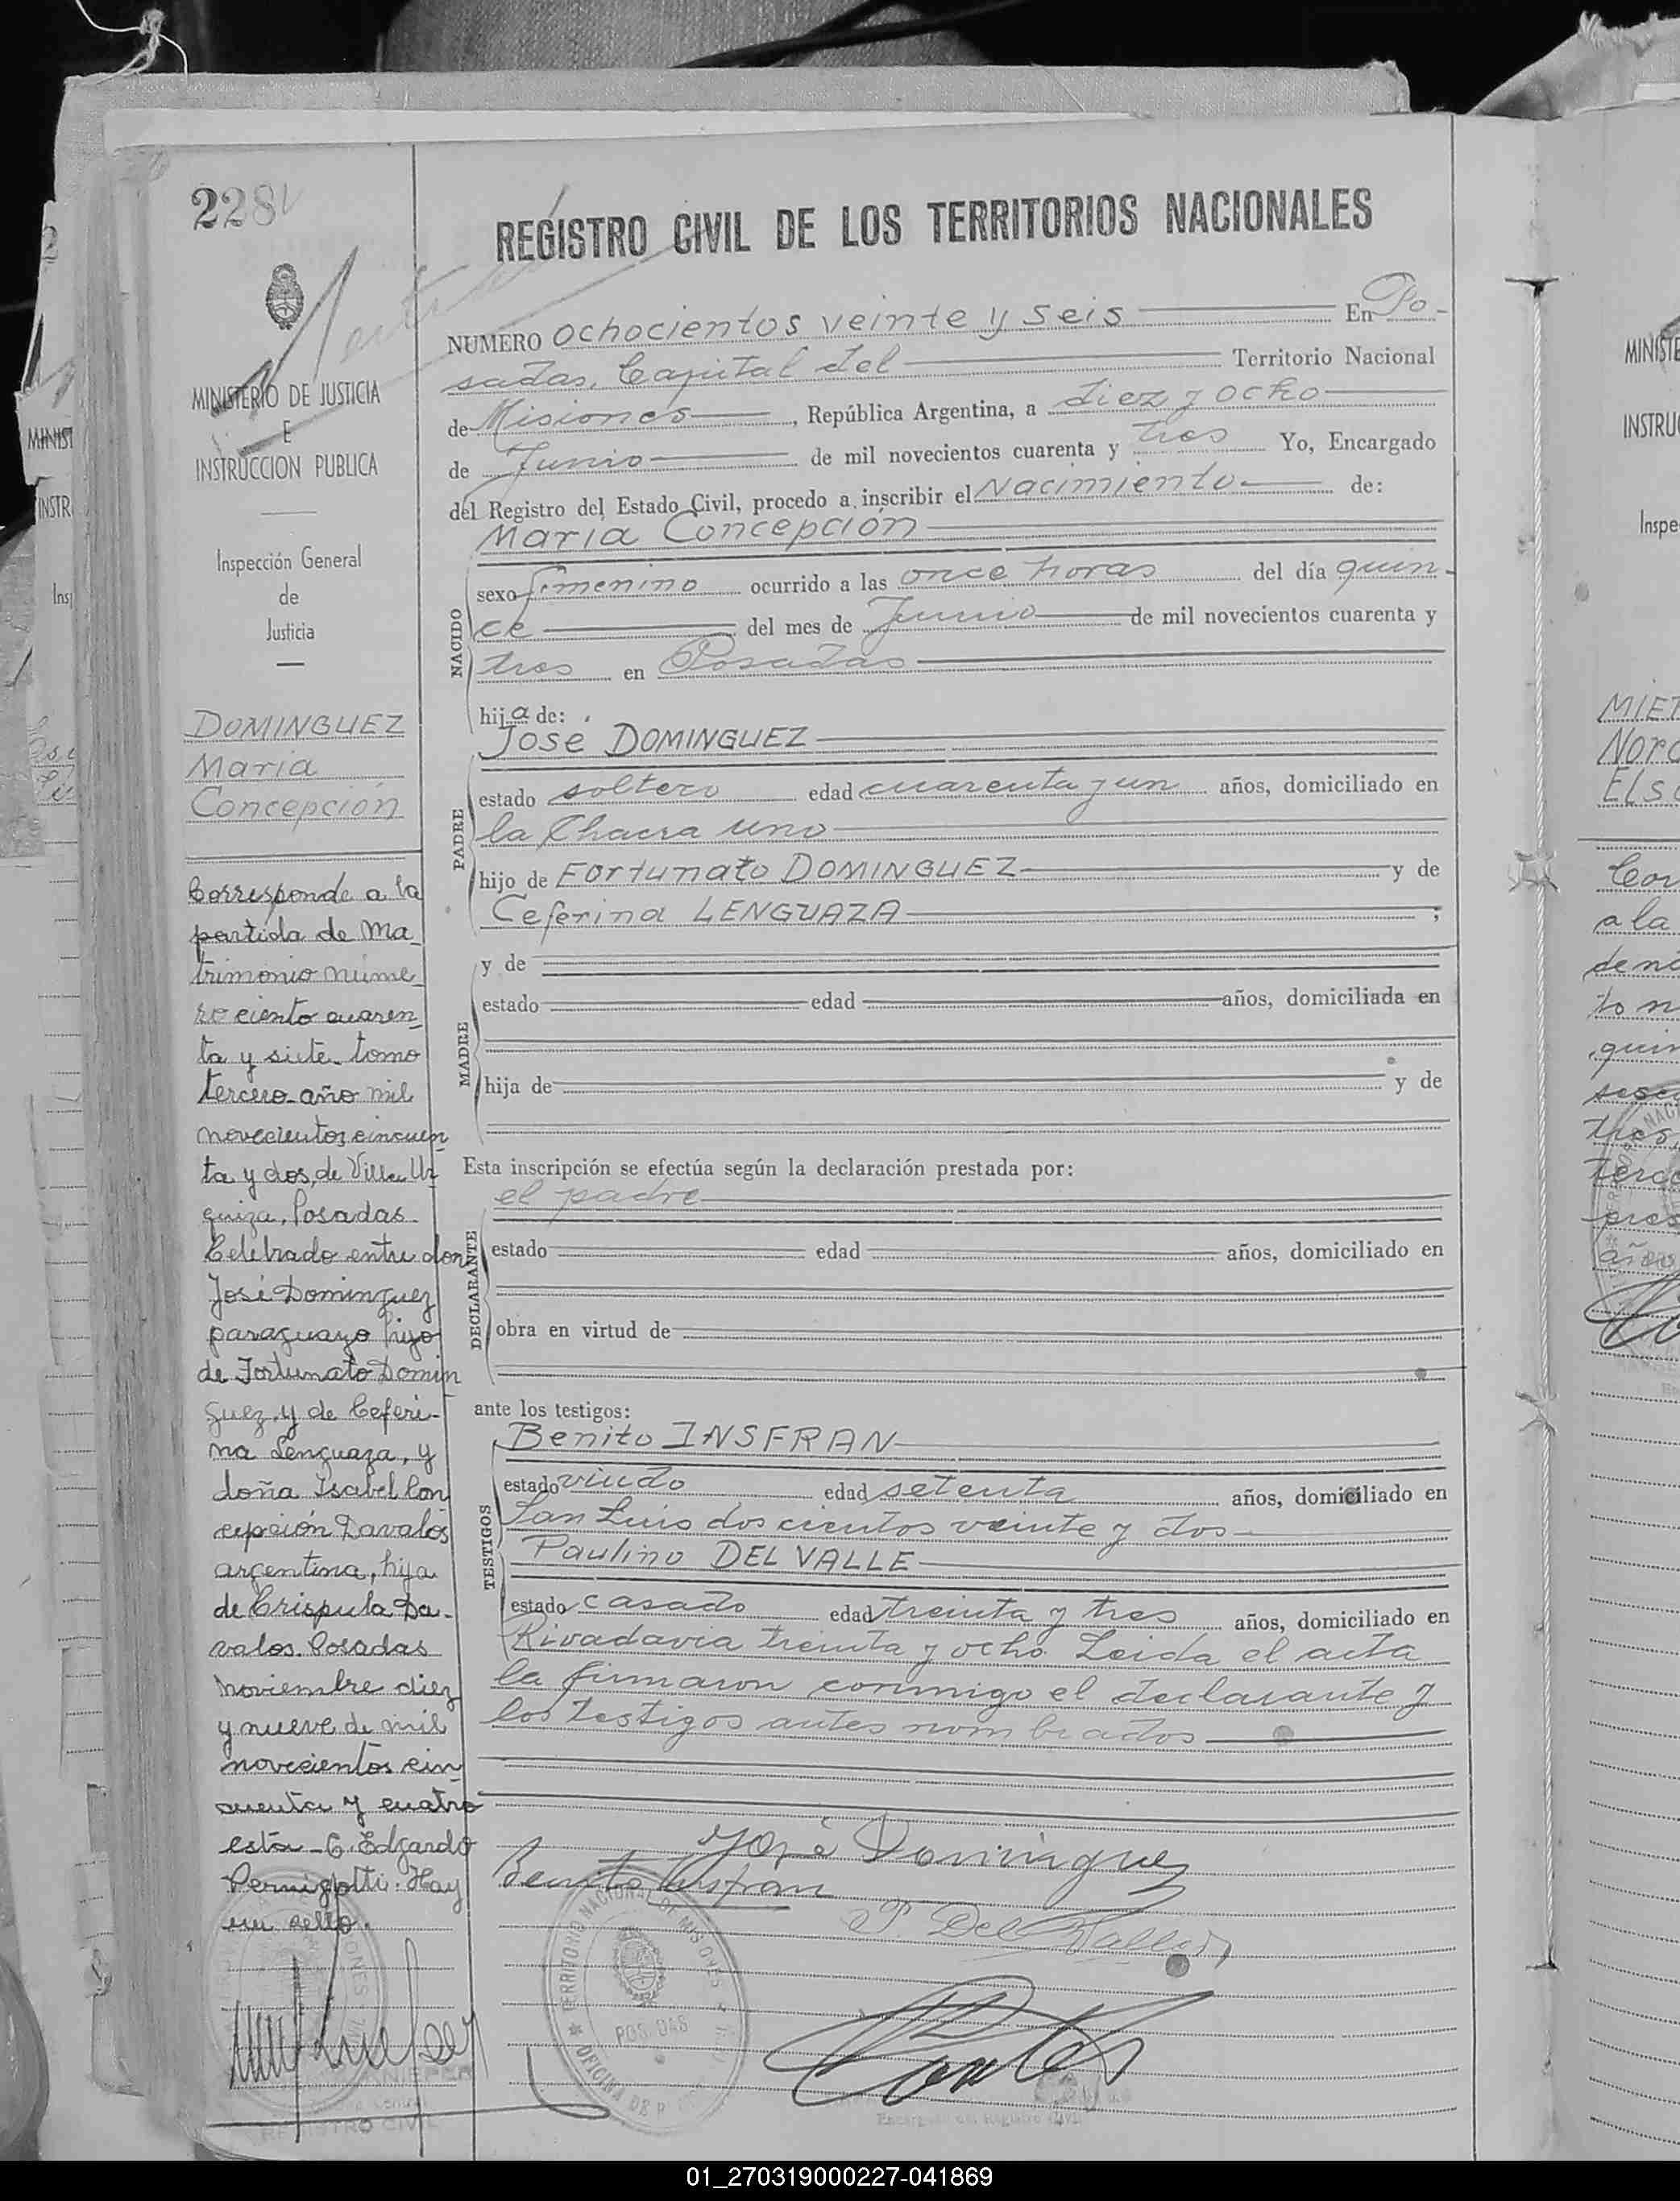 228
REGISTRO CIVIL DE LOS TERRITORIOS NACIONALES
MINISTERIO DE JUSTICIA
E
INSTRUCCION PUBLICA
Inspección General
de
Justicia
DOMINGUEZ
María
Concepción
Corresponde a la
partida de Ma_
trimonio núme_
ro ciento cuaren_
ta y siete_ tomo
tercero_año mil
novecientos cincuen
ta y dos, de Villa Ur
quiza, Posadas.
Celebrado entre don
José Dominguez
paraguayo hijo
de Fortunato Domin
guez, y de Ceferi-
na Lenguaza, y
doña Isabel Con
cepción Davalos
argentina, hija
de Crispula Da-
valos. Posadas
Noviembre diez
y nueve de mil
novecientos cin_
cuenta y cuatro
esta - G. Edgardo
Pernigotti. Hay
un sello.
NUMERO ochocientos veinte y seis En Po-
sadas, Capital del Territorio Nacional
de Misiones, República Argentina, a diez y ocho
de Junio de mil novecientos cuarenta y tres Yo, Encargado
del Registro del Estado Civil, procedo a inscribir el Nacimiento de:
María Concepción
NACIDO
sexo femenino ocurrido a las once horas del día quin-
ce del mes de Junio de mil novecientos cuarenta y
tres en Posadas
hija de:
José DOMINGUEZ
PADRE
estado soltero edad cuarenta y un años, domiciliado en
la Chacra uno
hijo de Fortunato DOMINGUEZ y de
Ceferina LENGUAZA ;
MADRE
y de
estado edad años, domiciliada en
hija de y de
Esta inscripción se efectúa según la declaración prestada por:
el padre
DECLARANTE
estado edad años, domiciliado en
obra en virtud de
ante los testigos:
TESTIGOS
Benito INSFRAN
estado viudo edad setenta años, domiciliado en
San Luis doscientos veinte y dos
Paulino DEL VALLE
estado casado edad treinta y tres años, domiciliado en
Rivadavia treinta y ocho. Leida el acta
la firmaron conmigo el declarante y
los testigos antes nombrados
José Dominguez
Benito Insfran
P. Del Valle
TERRITORIO NACIONAL DE MISIONES
POSADAS
OFICINA DE
Encargado del Registro Civil
REGISTRO CIVIL
MINIST
INSTR
Insp
MINISTE
INSTRUC
Inspe
MIET
Cor
a la
01_270319000227-041869